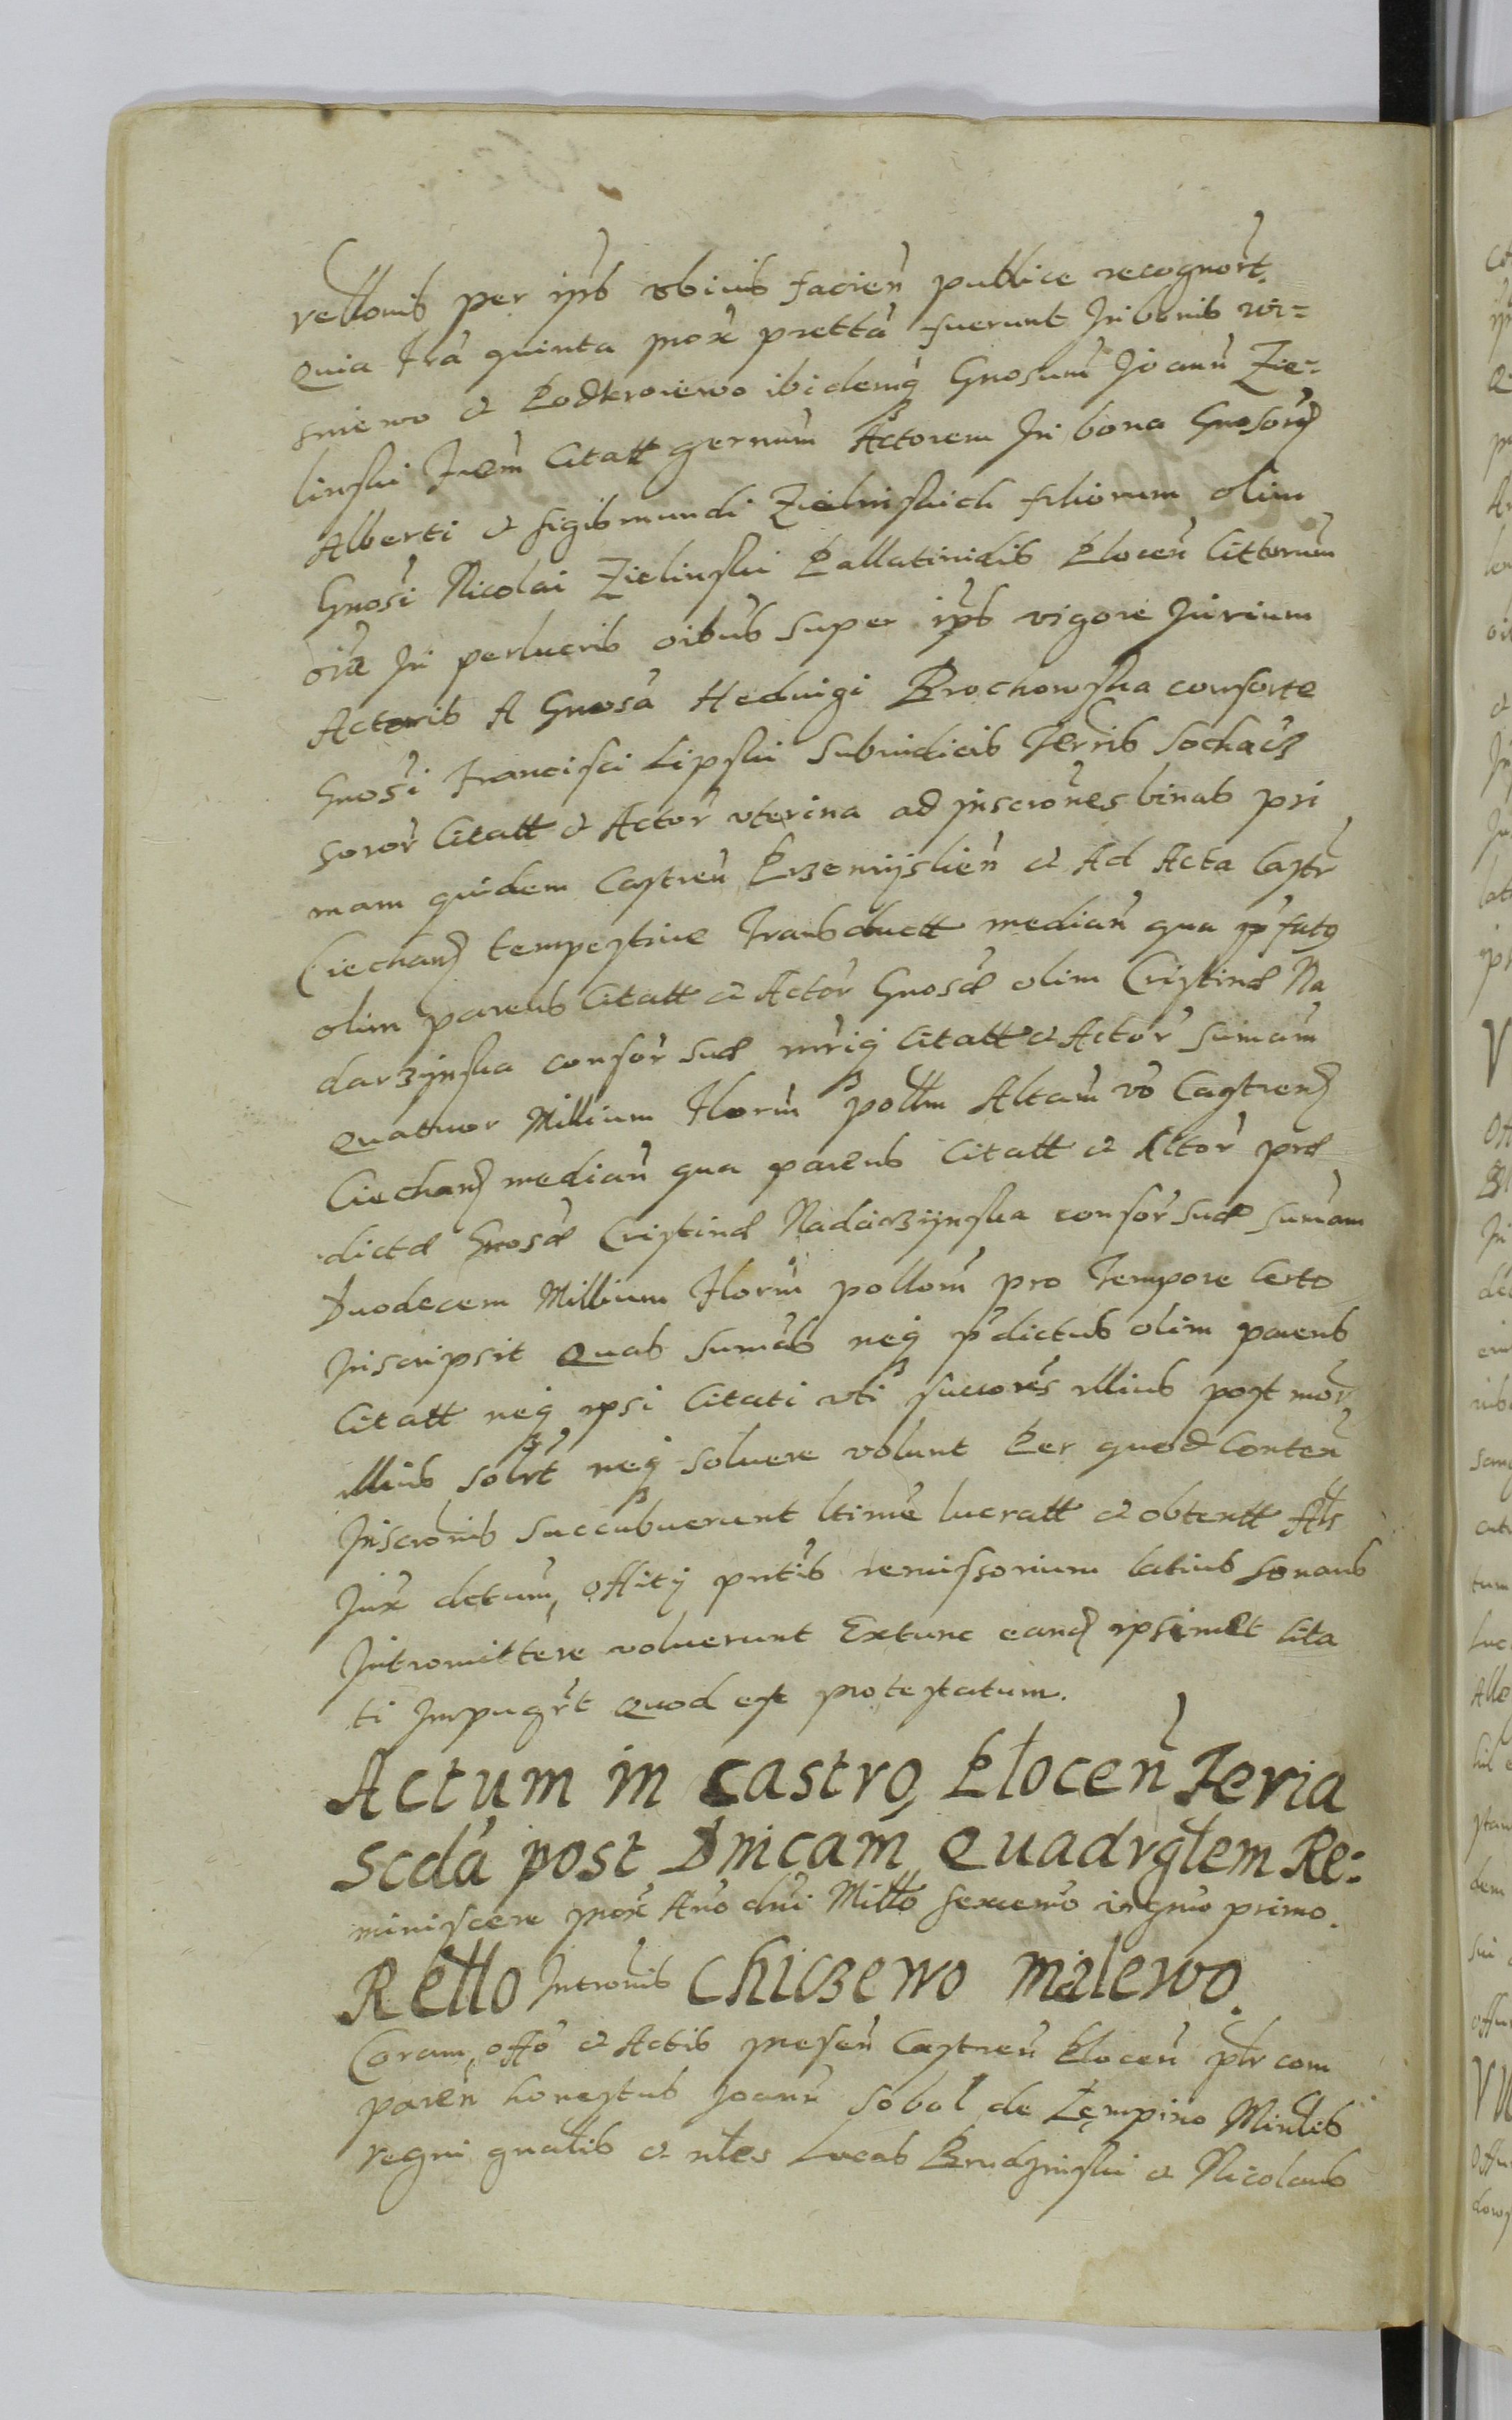 rellonis per ipsos ubivis facien publice recognort.
Quia fra quinta prox pretta fuerunt In bonis wi=
sniewo et Podkroiewo ibidemq Gnosum Joann Zie=
linski Frem Citatt germm Actorem In bona Gnosor
Alberti et Sigismundi Zielinskich filiorum olim
Gnosi Nicolai Zielinski Pallatinidis Plocen Cittorum
oia In perlucris oibus super ipsis vigore Jurium
Actoris A Gnosa Hedvigi Brochowska consorte
Gnosi Francisci Lipski Subiudicis Terris Sochacz
Soror Citatt et Actor uterina ad inscriones binas pri
mam quidem Castren Przemijslien et Ad Acta Castr
Ciechan tempestive Transductt median qua pfatq
olim parens Citatt et Actor Gnosæ olim Cristinæ Na
darzijnska consor suæ mriq Citatt et Actor sumam
Quatuor Millium Floru pollm Altam vo Castren
Ciechan median qua parens Citatt et Actor præ
dictæ Gnosæ Cristinæ Nadarzijnska consor suæ sumam
Duodecem Millium Floru pollom pro Tempore Certo
Inscripsit Quas sumas neq pdictus olim parens
Citatt neq ipsi Citati uti succores illius post mor
illius solrt neq soluere volunt Per quod Conten
Inscronis succubuerunt ltime lucratt et obtentt Als
Jux detum offity pntis remissorium latius sonans
Intromittere voluerunt Extunc eand ipsimet Cita
ti Impugrt Quod est protestatum.
Actum in castro Płocen Feria
scda post Dnicam Quadrgłem Re:
miniscere prox Ano dni Millo sexceno vigmo primo.
Retlo Intronis Chiczewo milewo.
Coram offo et Actis presen Castren Plocen pltr com
paren honestus Joann Sobol de Łempino Minlis
regni gnalis et nłes Lucas Brudzinski et Nicolaus